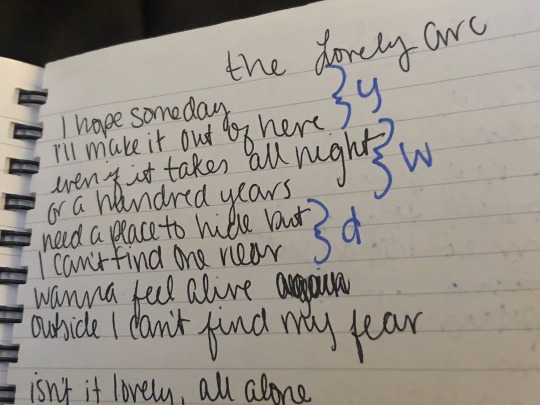 the Lovely arc
I hope someday
I'll make it out of here
} y
even if it takes all night
or a hundred years
} W
need a place to hide but
I can't find one near
} d
wanna feel alive
outside I can't find my fear
isn't it lovely, all alone